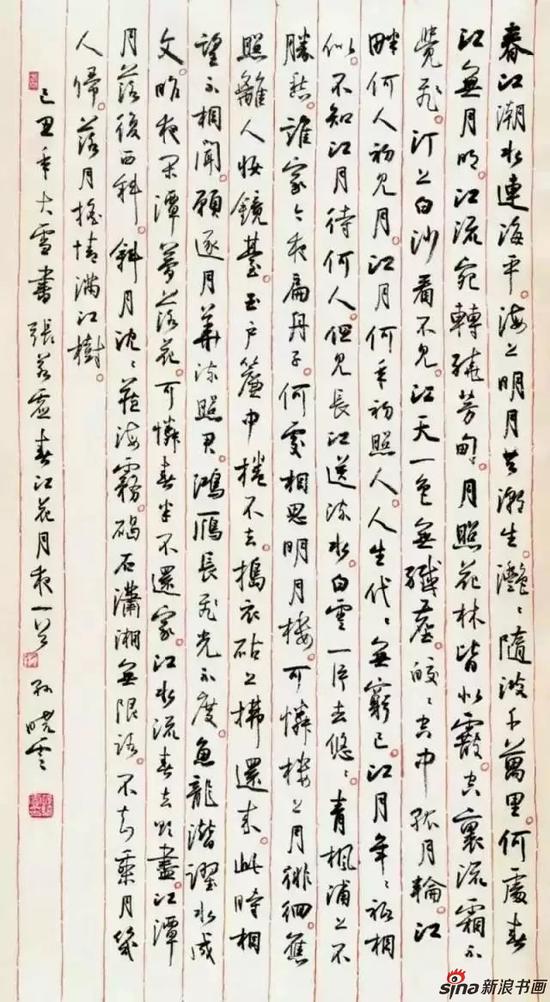 春江潮水連海平。海上明月共潮生。灔〻隨波千萬里。何處春
江無月明。江流宛轉繞芳甸。月照花林皆似霰。空裏流霜不
覺飛。汀上白沙看不見。江天一色無纖塵。皎〻空中孤月輪。江
畔何人初見月。江月何年初照人。人生代〻無窮已。江月年〻祗相
似。不知江月待何人。但見長江送流水。白雲一片去悠〻。青楓浦上不
勝愁。誰家今夜扁舟子。何處相思明月樓。可憐樓上月徘徊。應
照離人妝鏡臺。玉戶簾中捲不去。搗衣砧上拂還來。此時相
望不相聞。願逐月華流照君。鴻雁長飛光不度。魚龍潛躍水成
文。昨夜閑潭夢落花。可憐春半不還家。江水流春去欲盡。江潭
月落復西斜。斜月沈〻藏海霧。碣石瀟湘無限路。不知乘月幾
人歸。落月搖情滿江樹。
己丑年大雪書張若虛春江花月夜一首 孫曉雲
sina新浪书画